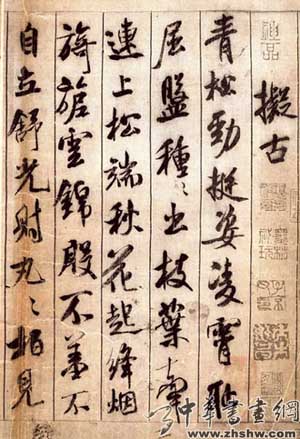 擬古
青松勁挺姿凌霄恥
屈盤種〻出枝葉牽
連上松端秋花起絳烟
旖旎雲錦殷不羞不
自立舒光射丸〻柏見
中華書畫網
www.zhshw.com